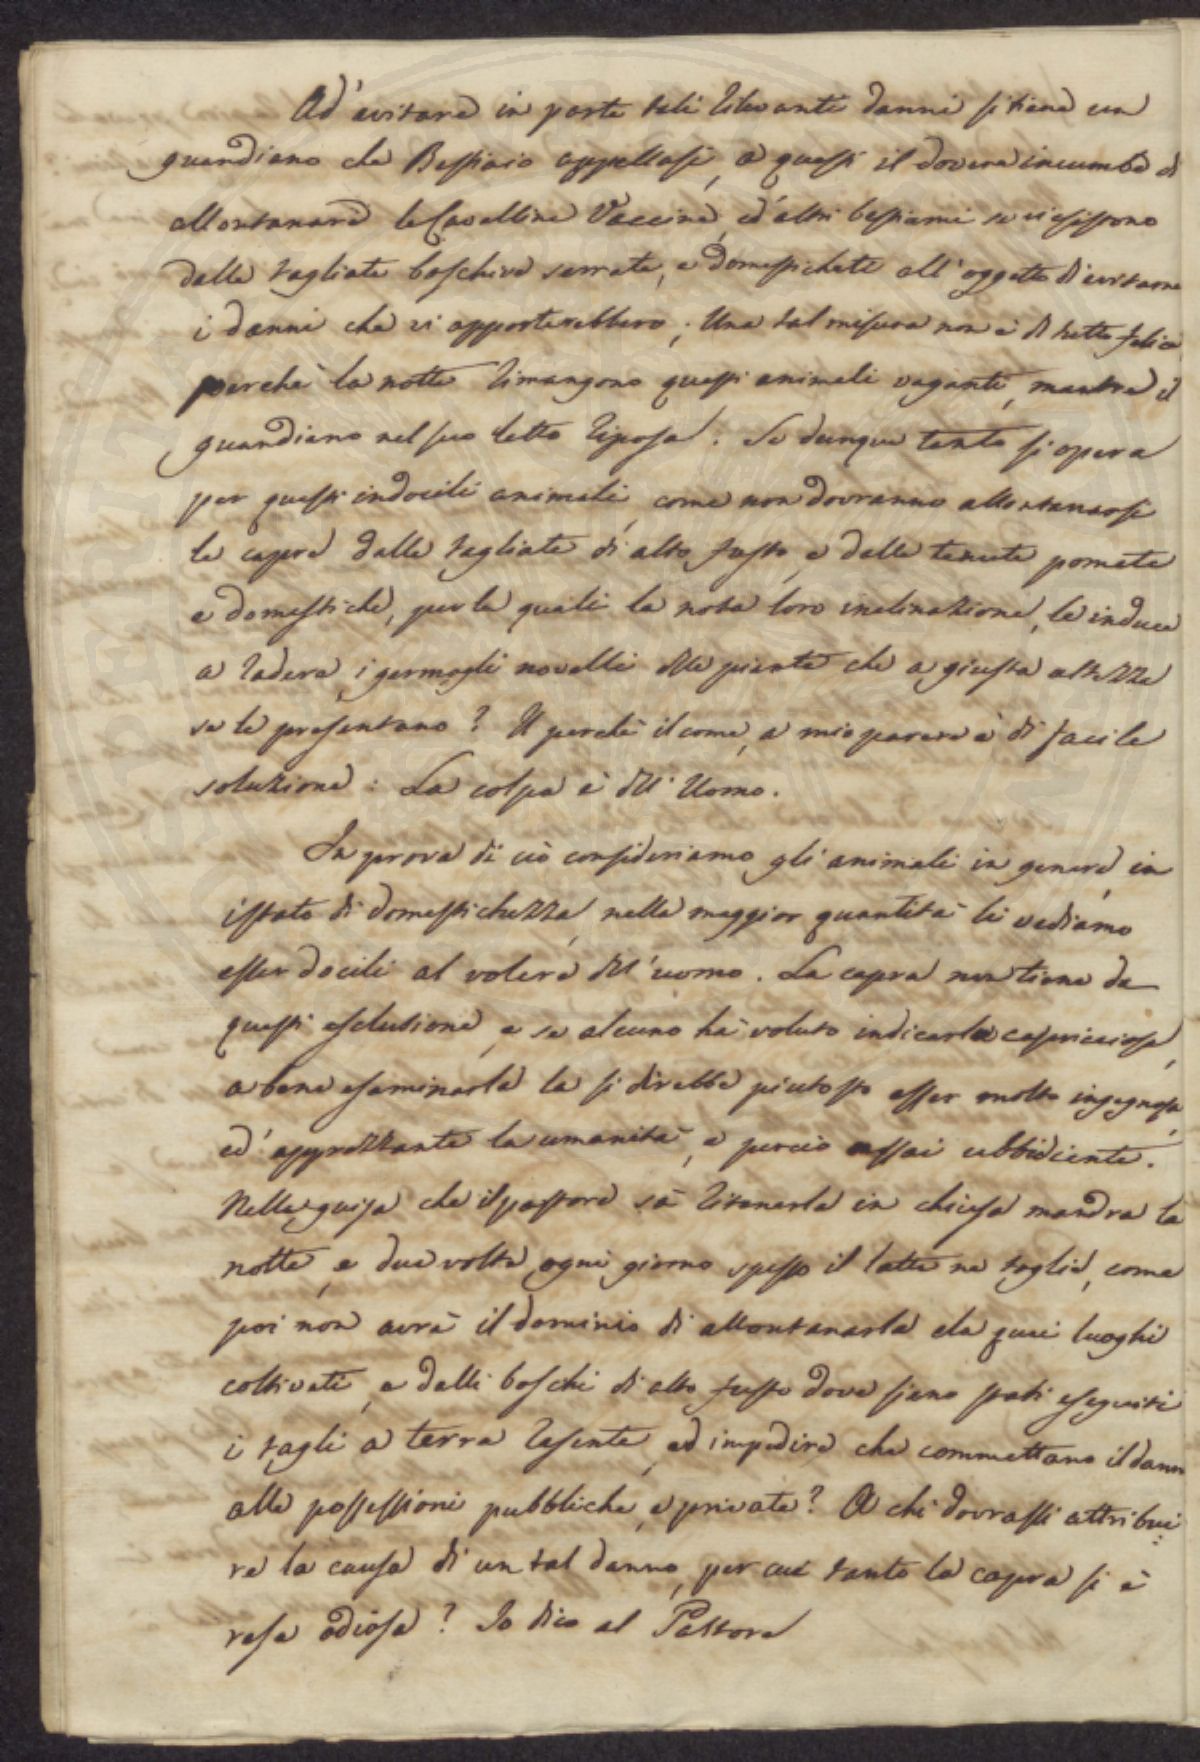 Ad' evitare in parte tali rilevanti danni si tiene un
guardiano che Bestiaio appellasi, a questi il dovere incumbe di
allontanare le Cavalline Vaccine, ed' altri bestiami se vi esistono
dalle tagliate boschive serrate, e domestichete all' oggetto di evitarne
i danni che vi apporterebbero; Una tal misura non è di tutto felice
perchè la notte rimangono questi animali vaganti, mentre il
guardiano nel suo letto riposa. Se dunque tanto si opera
per questi indocili animali, come non dovranno allontanarsi
le capre dalle tagliate di alto fusto, e dalle tenute pomate
e domestiche, per le quali la nota loro inclinazione, le induce
a radere i germogli novelli delle piante che a giusta altezza
se le presentano? Il perchè il come, a mio parere è di facile
soluzione: La colpa è dell' Uomo.
In prova di ciò consideriamo gli animali in genere, in
istato di domestichezza, nella maggior quantità li vediamo
esser docili al volere dell' uomo. La capra non tiene da
questi esclusione, e se alcuno hà voluto indicarla capricciosa,
a bene esaminarla la si direbbe piutosto esser molto ingegnosa,
ed' apprezzante la umanità, e perciò assai ubbidiente.
Nella guisa che il pastore sà ritenerla in chiusa mandra la
notte, e due volte ogni giorno spesso il latte ne toglie, come
poi non avrà il dominio di allontanarla da quei luoghi
coltivati, e dalli boschi di alto fusto dove siano stati eseguiti
i tagli a terra rasente, ed impedire che commettano il danno
alle possessioni pubbliche, e private? A chi dovrassi attribui:
re la causa di un tal danno, per cui tanto la capra si è
resa odiosa? Io dico al Pastore